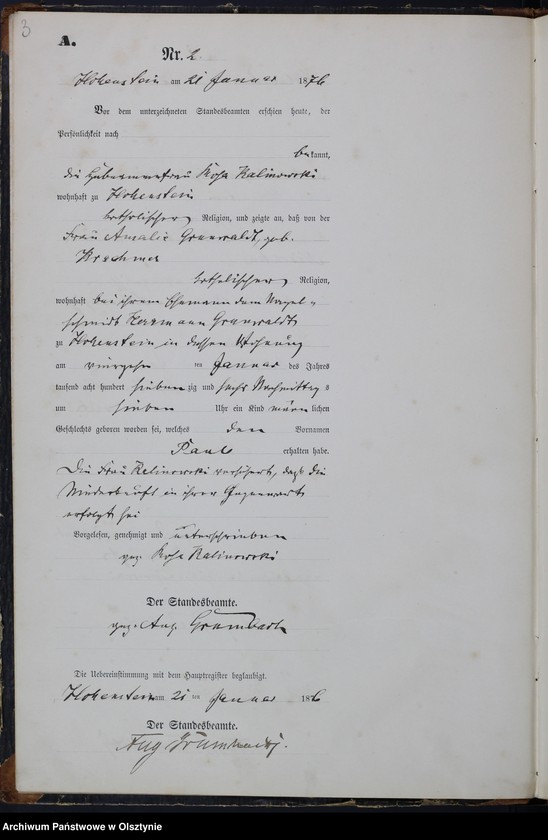 3
A.
Nr. 2.
Hohenstein am 21 Januar 1876
Vor dem unterzeichneten Standesbeamten erschien heute, der
Persönlichkeit nach
bekannt,
die Hebeammefrau Rosa Kalinowski
wohnhaft zu Hohenstein
katholischer Religion, und zeigte an, daß von der
Frau Amalie Grunwaldt, geb.
katholischer Religion,
wohnhaft bei ihrem Ehemann dem Nagel-
schmidt Hermann Grunwaldt
zu Hohenstein in dessen Wohnung
am vierzehn ten Januar des Jahres
tausend acht hundert siebenzig und sechs Nachmittags
um sieben Uhr ein Kind männlichen
Geschlechts geboren worden sei, welches den Vornamen
Paul erhalten habe.
Die Frau Kalinowski versichert, daß die
Niederkunft in ihrer Gegenwart
erfolgt sei
Vorgelesen, genehmigt und unterschrieben
gez. Rosa Kalinowski
Der Standesbeamte.
gez. Aug.
Die Uebereinstimmung mit dem Hauptregister beglaubigt.
Hohenstein am 21 ten Januar 1876
Der Standesbeamte.
Aug
Archiwum Państwowe w Olsztynie